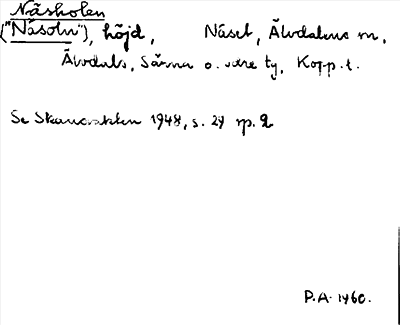 Näsholen
("Näsoln"), höjd, Näset, Älvdalens m,
Älvdals, Särna o. Idre tg, Kopp. l.
Se Skansvakten 1948, s. 29 sp. 2
P.A. 1960.